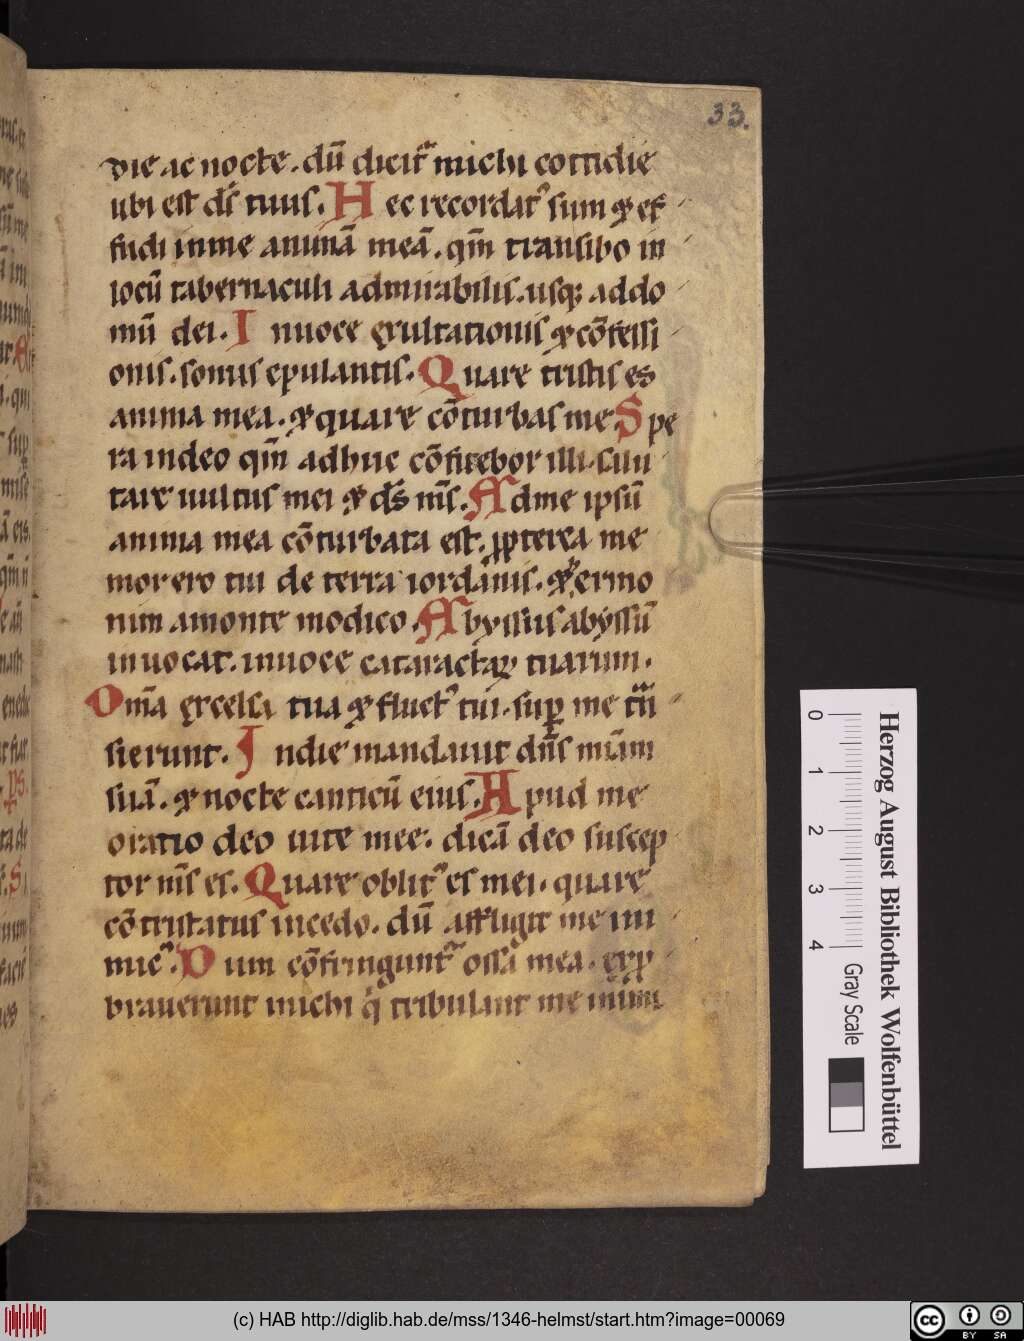 33.
die ac nocte. dū dicit᷑ michi cottidie
ubi est ds̄ tuus. Hec recordat᷒ sum ⁊ ef
fudi inme animā meā. qm̄ transibo in
locū tabernaculi admirabilis. usq; addo
mū dei. Inuoce exultationis ⁊ cōfessi
onis. sonus epulantis. Quare tristis es
anima mea. ⁊ quare cōturbas me Spe
ra indeo qm̄ adhuc cōfitebor illi. salu
tare uultus mei ⁊ ds̄ ms̄. Adme ipsū
anima mea cōturbata est. ꝓpterea me
mor ero tui de terra iordanis. ⁊ ermo
nim amonte modico. Abyssus abyssū
inuocat. inuoce cataractaꝝ tuarum.
Om̄a excelsa tua ⁊ fluct᷒ tui. suꝑ me tn̄
sierunt. Indie mandauit dn̄s mīam
suā. ⁊ nocte canticū eius. Apud me
oratio deo uite mee. dicā deo suscep
tor ms̄ es. Quare oblit᷒ es mei. quare
cōtristatus incedo. dū affligit me ini
mic᷒. Dum cōfringunt᷑ ossa mea. exꝓ
brauerunt michi q̇ tribulant me inim
Herzog August Bibliothek Wolfenbüttel
0 1 2 3 4
Gray Scale
(c) HAB http://diglib.hab.de/mss/1346-helmst/start.htm?image=00069
cc BY SA